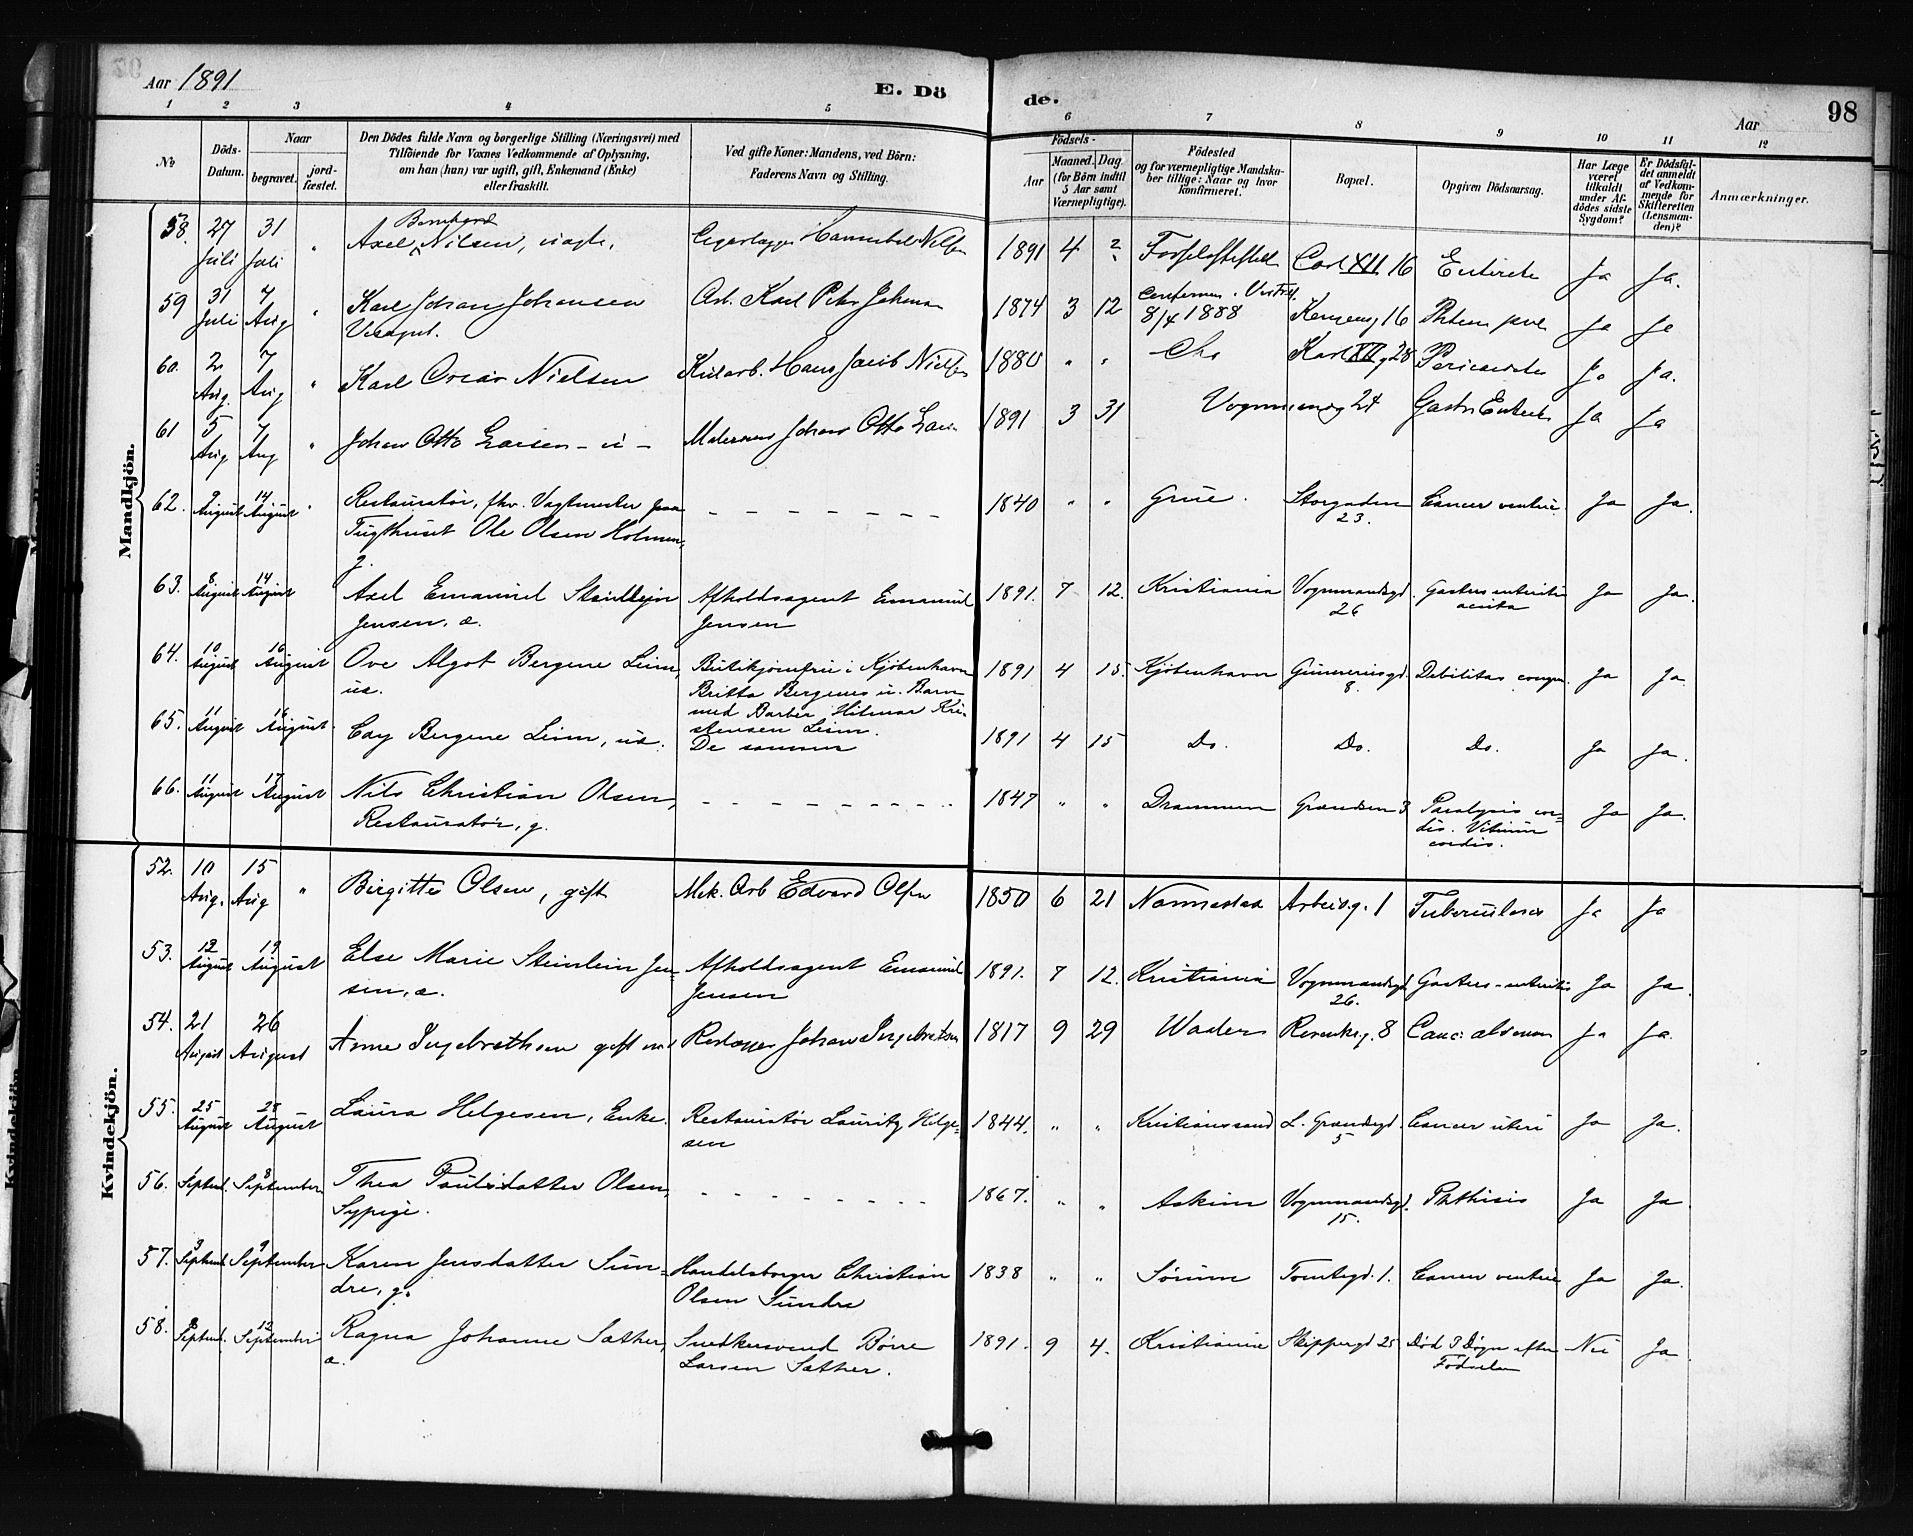 Aar 1891
E. Dö
de.
Aar
98
1 2 3 4 5 6 7 8 9 10 11 12
No
Döds-
Datum.
Naar
begravet.
jord-
fæstet.
Den Dödes fulde Navn og borgerlige Stilling (Næringsvei) med
Tilföiende for Voxnes Vedkommende af Oplysning,
om han (hun) var ugift, gift, Enkemand (Enke)
eller fraskilt.
Ved gifte Koner: Mandens, ved Börn:
Faderens Navn og Stilling.
Födsels-
Aar
Maaned. Dag
(for Börn indtil
5 Aar samt
Værnepligtige).
Födested
og for værnepligtige Mandska-
ber tillige: Naar og hvor
konfirmeret.
Bopæl.
Opgiven Dödsaarsag.
Har Læge
været
tilkaldt
under Af-
dödes sidste
Sygdom?
Er Dödsfal-
det anmeldt
af Vedkom-
mende for
Skifteretten
(Lensman-
den)?
Anmærkninger.
Mandkjön.
58. 27 Juli 31 Juli "
Bernhard
Axel Nilsen, uægte,
Hannibal Nilsen
1891 4 2 Fødselsstiftels Carl XII 16 Enterit Ja Ja.
59 31 Juli 4 Aug "
Karl Johan Johansen
Arb. Karl Peter Johansen
1874 3 12 8/4 1888 16 Ja Ja
60. 2 Aug. 7 Aug "
Karl Oscar Nielsen
Kularb. Hans Jacob Nielsen
1880 " " Chr Karl XII g 28 Ja Ja.
61 5 Aug 7 Aug "
Johan Otto Larsen
Johan Otto Lars
1891 3 31 Vognmandsg 24 Gastro Enterit Ja Ja
62. 9 August 14 August "
Restauratør, fhv. Vagtmester paa
Tugthuset Ole Olsen Holmen,
g.
- - - - - - - -
1840 " " Grue. Storgaden
23.
Cancer ventric. Ja Ja.
63. 8 August 14 August
Axel Emanuel Steinlein
Jensen, æ.
Afholdsagent Emanuel
Jensen
1891. 7 12. Kristiania Vognmandsgd.
26
Gastro enteritis
acuta
Ja Ja.
64. 10 August 16 August
Ove Algot Bergene Leim,
uæ.
Butikjomfru i Kjøbenhavn
Britta Bergenes u. Barn
med Barber Hilmar Kri-
stensen Leim.
1891 4 15. Kjøbenhavn Gunnerusgd.
8.
Debilitas congen. Ja Ja.
65. 11 August 16 August
Cay Bergene Leim, uæ.
De samme
1891 4 15 Do. Do. Do. Ja Ja.
66. 11 August 17 August
Nils Christian Olsen,
Restauratør, g.
- - - - - - - - -
1847 " " Drammen Grændsen 3 Paralysis cor-
dis. Vitium
cordis.
Ja Ja.
Kvindekjön.
52. 10 Aug. 15 Aug "
Birgitte Olsen, gift
Mek. Arb Edvard Olsen
1850 6 21 Nannestad Arbeidg. 1 Tuberculosis Ja Ja
53. 12 August 19 August
Else Marie Steinlein Jen-
sen, æ.
Afholdsagent Emanuel
Jensen
1891. 7 12. Kristiania Vognmandsgd
26.
Gastro-enteritis Ja Ja.
54. 21 August 26 August
Anne Ingebrethsen gift med
Johan Ingebretsen
1817 9 29 Waaler 8 Ja Ja.
55. 25 August 28 August
Laura Helgesen, Enke.
Restauratør Lauritz Helge-
sen
1844. " " Kristianssand L. Grændsegd.
5
Cancer uteri Ja Ja.
56. Septemb. 8 September
Thea Paulsdatter Olsen,
Sypige.
- - - - - - - - -
1867. " " Askim Vognmandsgd.
15.
Phthisis Ja Ja
57. 3 Septemb. 9 September
Karen Jensdatter Sun-
dre, g.
Handelsborger Christian
Olsen Sundre
1838 " " Sørum Tomtegd. 1. Cancer ventric. Ja Ja.
58. Septemb. 12 September
Ragna Johanne Sæther,
æ.
Snedkersvend Børre
Larsen Sæther.
1891. 9 4. Kristiania Skippergd 25 Død 3 Døgn efter
Fødselen
Nei Ja.